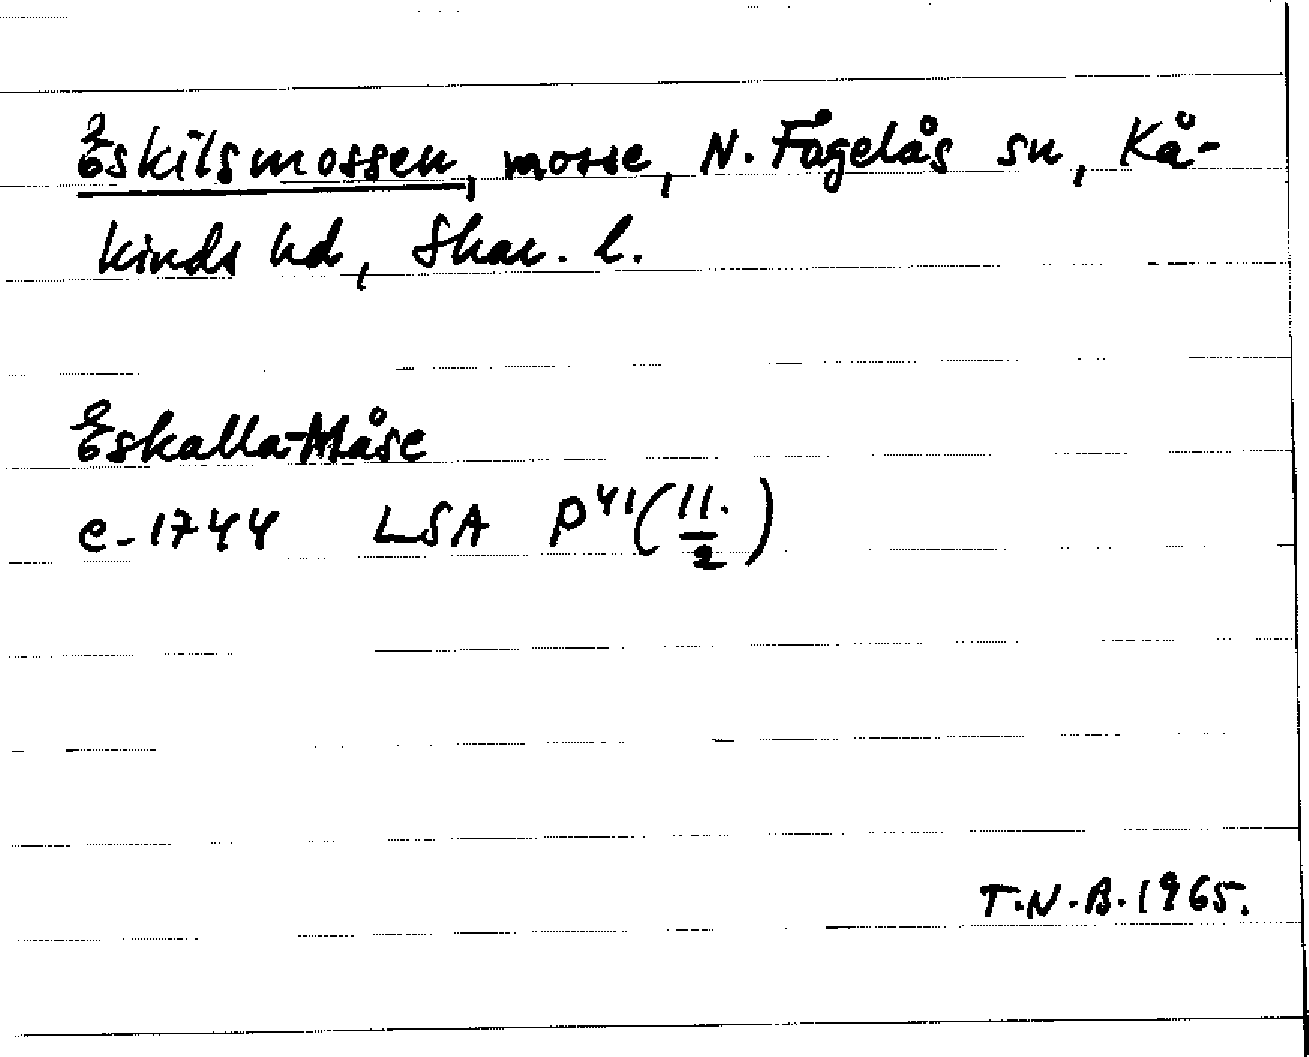 Eskilsmossen, mosse, N. Fågelås sn, Kå-
kinds hd, Skar. l.
Eskalla-Måse
c. 1744 LSA P41 (11./2)
T.N.B. 1965.